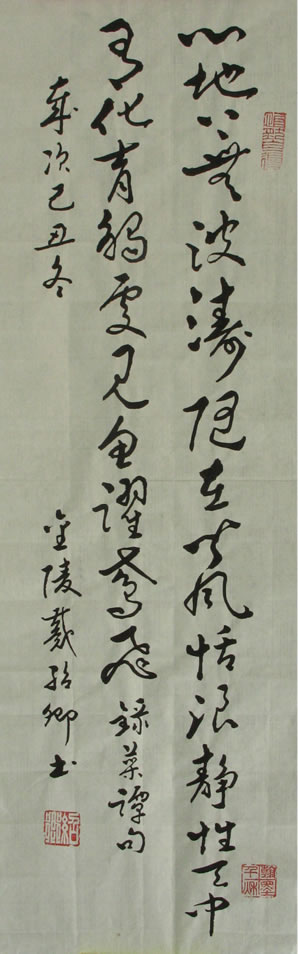 心地上無波濤随在皆風恬浪静性天中
有化育觸處見魚躍鳶飛 録菜譚句
歲次己丑冬 金陵戴紹卿書